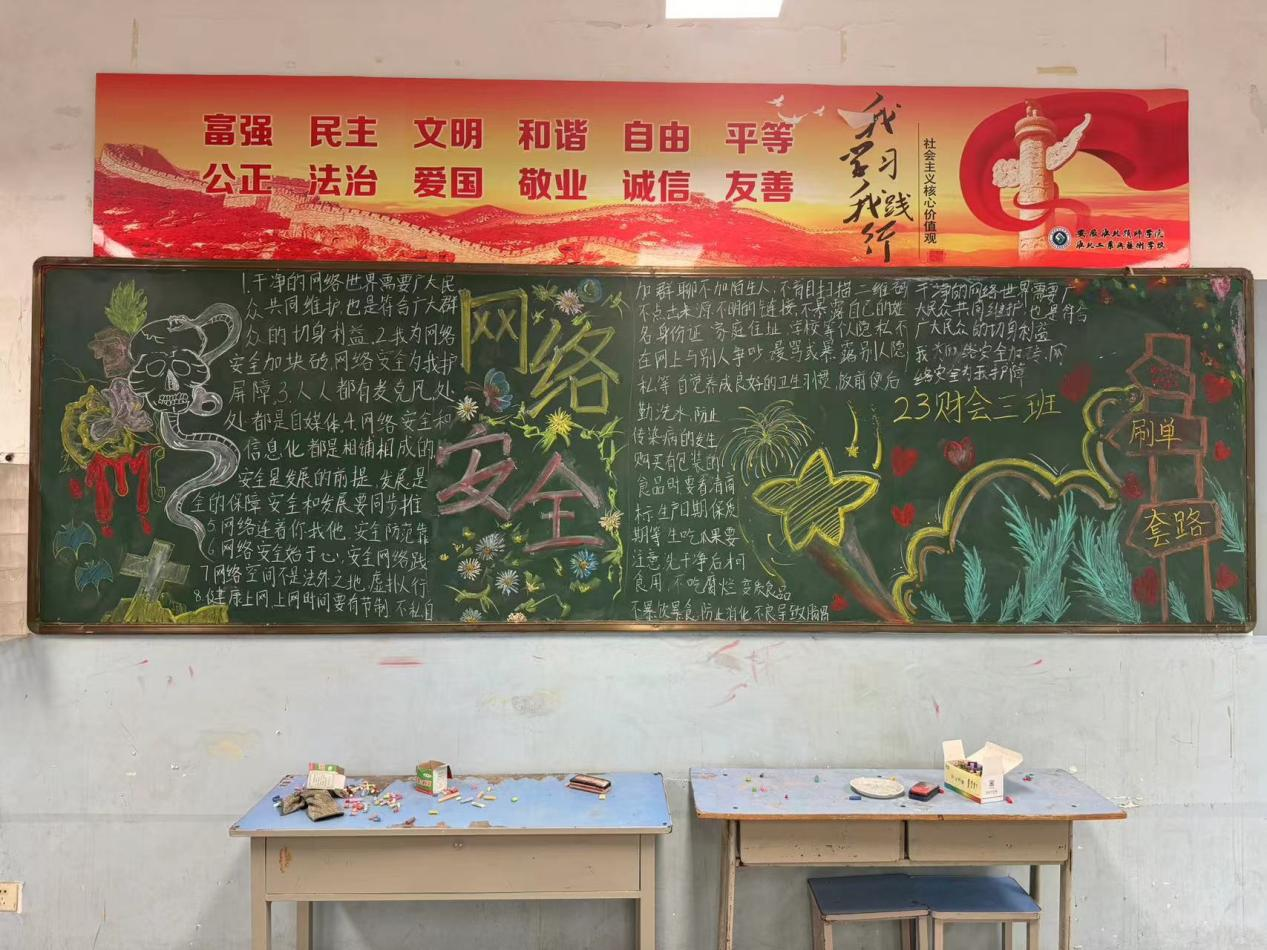 富强 民主 文明 和谐 自由 平等
公正 法治 爱国 敬业 诚信 友善
我学习
我践行
社会主义核心价值观
1.干净的网络世界需要广大民
众共同维护,也是符合广大群
众的切身利益.2.我为网络
安全加块砖,网络安全为我护
屏障.3.人人都有麦克风,处
处都是自媒体4.网络安全和
信息化都是相铺相成的
安全是发展的前提,发展是
全的保障,安全和发展要同步推
5网络连着你我他,安全防范靠
6.网络安全始于心,安全网络践
7网络空间不是法外之地,虚拟人行
8.健康上网,上网时间要有节制,不私自
网络
安全
加群聊不加陌生人,不盲目扫描二维码
不点击来源不明的链接,不暴露自己的姓
名身份证、家庭住址、学校等以隐私不
在网上与别人争吵、漫骂或暴露别人隐
私等 自觉养成良好的卫生习惯,放前便后
勤洗水,防止
传染病的发生
购买有包装的
食品时,要看清商
标,生产日期保质
期等,生吃瓜果要
注意洗干净后才可
食用,不吃腐烂变质食品
不暴饮暴食,防止消化不良导致腹
干净的网络世界需要广
大民众共同维护,也是符合
广大民众的切身利益
23财会三班
刷单
套路